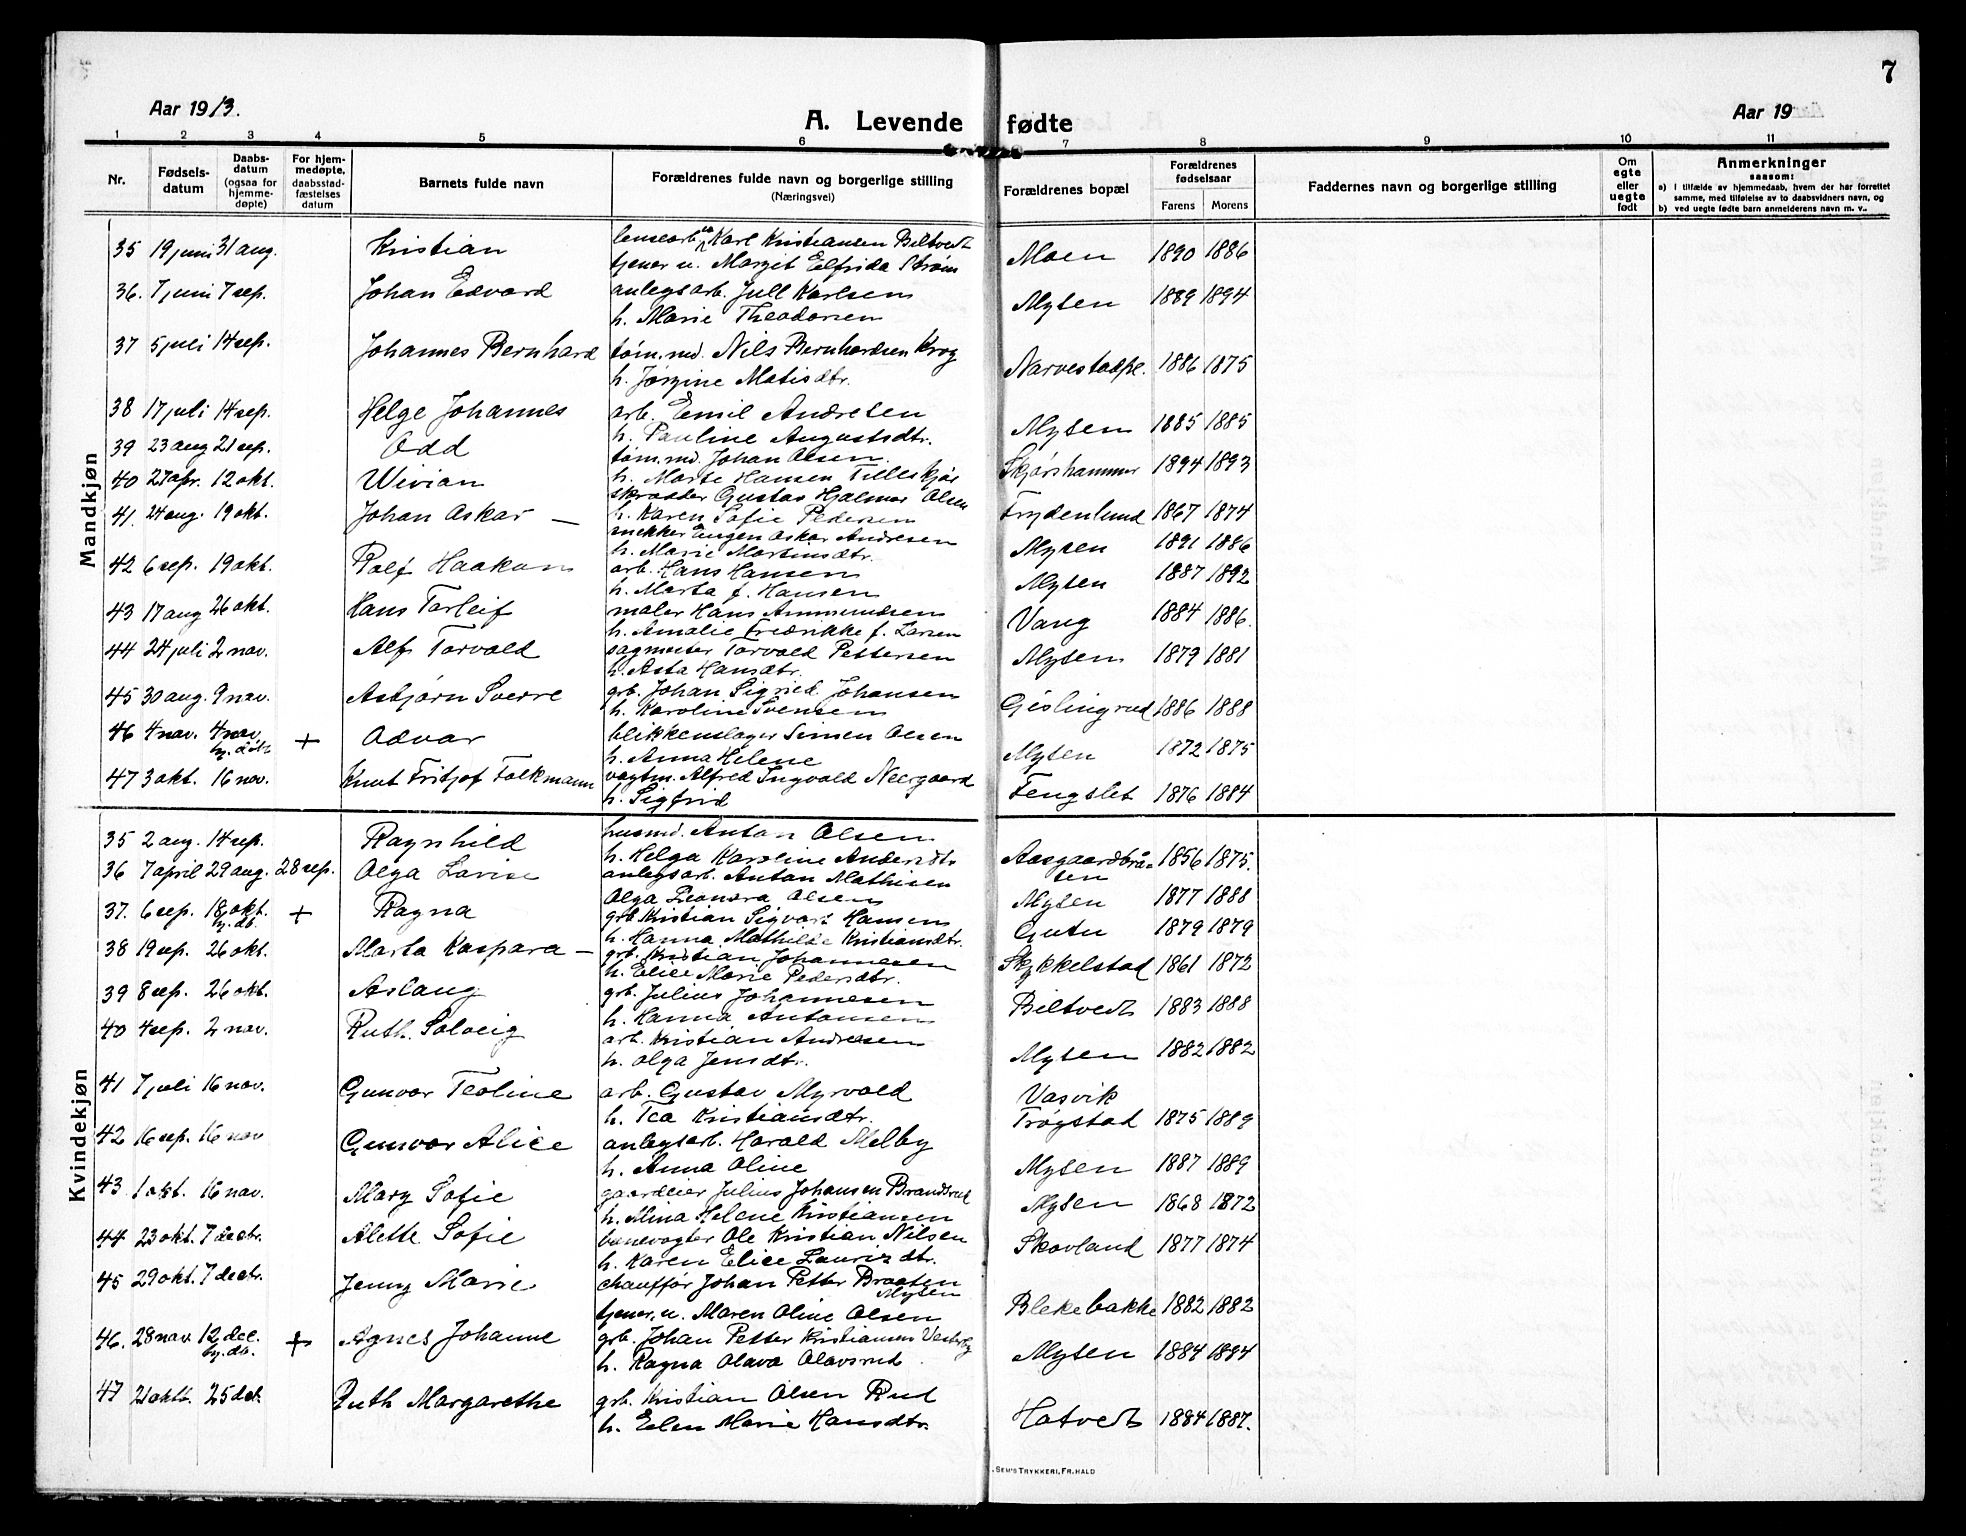 7
Aar 1913.
A. Levende fødte
Aar 19
1 2 3 4 5 6 7 8 9 10 11
Nr.
Fødsels-
datum
Daabs-
datum
(ogsaa for
hjemme-
døpte)
For hjem-
medøpte,
daabsstad-
fæstelses
datum
Barnets fulde navn
Forældrenes fulde navn og borgerlige stilling
(Næringsvei)
Forældrenes bopæl
Forældrenes
fødselsaar
Farens Morens
Faddernes navn og borgerlige stilling
Om
egte
eller
uegte
født
Anmerkninger
saasom:
a) i tilfælde av hjemmedaab, hvem der har forrettet
samme, med tilføielse av to daabsvidners navn, og
b) ved uegte fødte barn anmelderens navn m. v..
Mandkjøn
35 19 juni 31 aug. Kristian Karl Kristiansen Biltvedt Moen 1890 1886
tjener u. Margit Elfrida Strøm
36. 7 juni 7 sep. Johan Edvard anlegsarb. Jull Karlsen Mysen 1889 1894
h. Marie Theodorsen
37 5 juli 14 sep. Johannes Bernhard tøm.md. Nils Bernhardsen Krog Narvestadpl. 1886 1875
h. Jørgine Matisdtr.
38 17 juli 14 sep. Helge Johannes arb. Emil Andresen Mysen 1885 1885
h. Pauline Augustsdtr.
39 23 aug 21 sep. Odd tøm.md. Johan Olsen. Skjørshammer 1894 1893
h. Marte Hansen Tilleskjør
40 27 apr. 12 okt. Wivian skrædder Gustav Hjalmar Olsen Frydenlund 1867 1874
h. Karen Sofie Pedersen
41. 24 aug. 19 okt. Johan Oskar — Eugen Oskar Andresen Mysen 1891 1886
h. Marie Martinsdtr.
42 6 sep. 19 okt. Rolf Haakon arb. Hans Hansen Mysen 1887 1892
h. Marta f. Hansen
43 17 aug 26 okt. Hans Torleif maler Hans Ammundsen Vang 1884 1886.
h. Amalie Fredrikke f. Larsen
44 24 juli 2 nov. Alf Torvald sagmester Torvald Pettersen Mysen 1879 1881
h. Asta Hansdtr.
45 30 aug. 9 nov. Asbjørn Sverre grb. Johan Sigvied Johansen Gislingrud 1886 1888
h. Karoline Svensen
46 4 nov. 4 nov. + Odvar blikkenslager Simen Olsen Mysen 1872 1875
hj. døbt
h. Anna Helene
47 3 okt. 16 nov. Knut Fritjof Folkmann vagtm. Alfred Ingvald Neergaard Fengslet 1876 1884
h. Sigfrid
Kvindekjøn
35 2 aug. 14 sep. Ragnhild husmd. Anton Olsen Aasgaardbrå- 1856 1875.
h. Helga Karoline Andersdtr. ten
36 7 april 29 aug. 28 sep. Olga Lovise anlegsarb. Anton Mathisen Mysen 1877 1888
Olga Leonora Olsen
37. 6 sep. 18 okt. + Ragna grb Kristian Sigvart Hansen Gutu 1879 1879
hj. db.
h. Hanna Mathilde Kristiansdtr.
38 19 sep. 26 okt. Marta Kaspara — grb. Kristian Johannesen Skykkelstad 1861 1872
h. Elise Marie Pedersdtr.
39 8 sep. 26 okt. Aslaug grb. Julius Johannesen Biltvedt 1883 1888
h. Hanna Antonsen
40 4 sep. 2 nov. Ruth Solveig arb. Kristian Andresen Mysen 1882 1882
h. Olga Jensdtr.
41 7 juli 16 nov. Gunvor Teoline arb. Gustav Myrvold Vasvik
h. Tea Kristiansdtr. Trøgstad 1875 1889
42 16 sep. 16 nov Gunvor Alice anlegsarb. Harald Melby Mysen 1887 1889
h. Anna Oline
43. 1 okt. 16 nov. Mary Sofie gaardeier Julius Johansen Brandsrud Mysen 1868 1872
h. Mina Helene Kristiansen
44 23 okt. 7 decbr. Alette Sofie banevogter Ole Kristian Nilsen Skovland 1877 1874
h. Karen Elise Lauriz dtr.
45 29 okt. 7 decbr. Jenny Marie chauffør Johan Petter Braaten
Mysen
tjener, u. Maren Oline Olsen Blekebakke 1882 1882
46. 28 nov. 12 dec. + Agnes Johanne grb. Johan Petter Kristiansen Vestby Mysen 1884 1894
hj. db.
h. Ragna Olava Olavsrud
47 21 okt. 25 det. Ruth Margarethe grb. Kristian Olsen Rud Hotvedt 1884 1887.
h. Elen Marie Hansdtr.
SEM'S TRYKKERI, FR.HALD